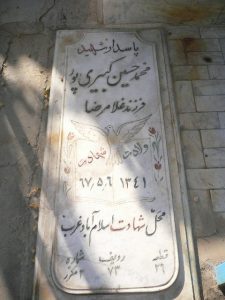 پاسدار شهید
محمد حسین کبیری پور
فرزند غلامرضا
ولادت شهادت
۱۳۴۱ ۶۷،۵،۶
محل شهادت اسلام آباد غرب
قطعه ردیف شماره
۲۶ ۷۳ ۲ مکرر